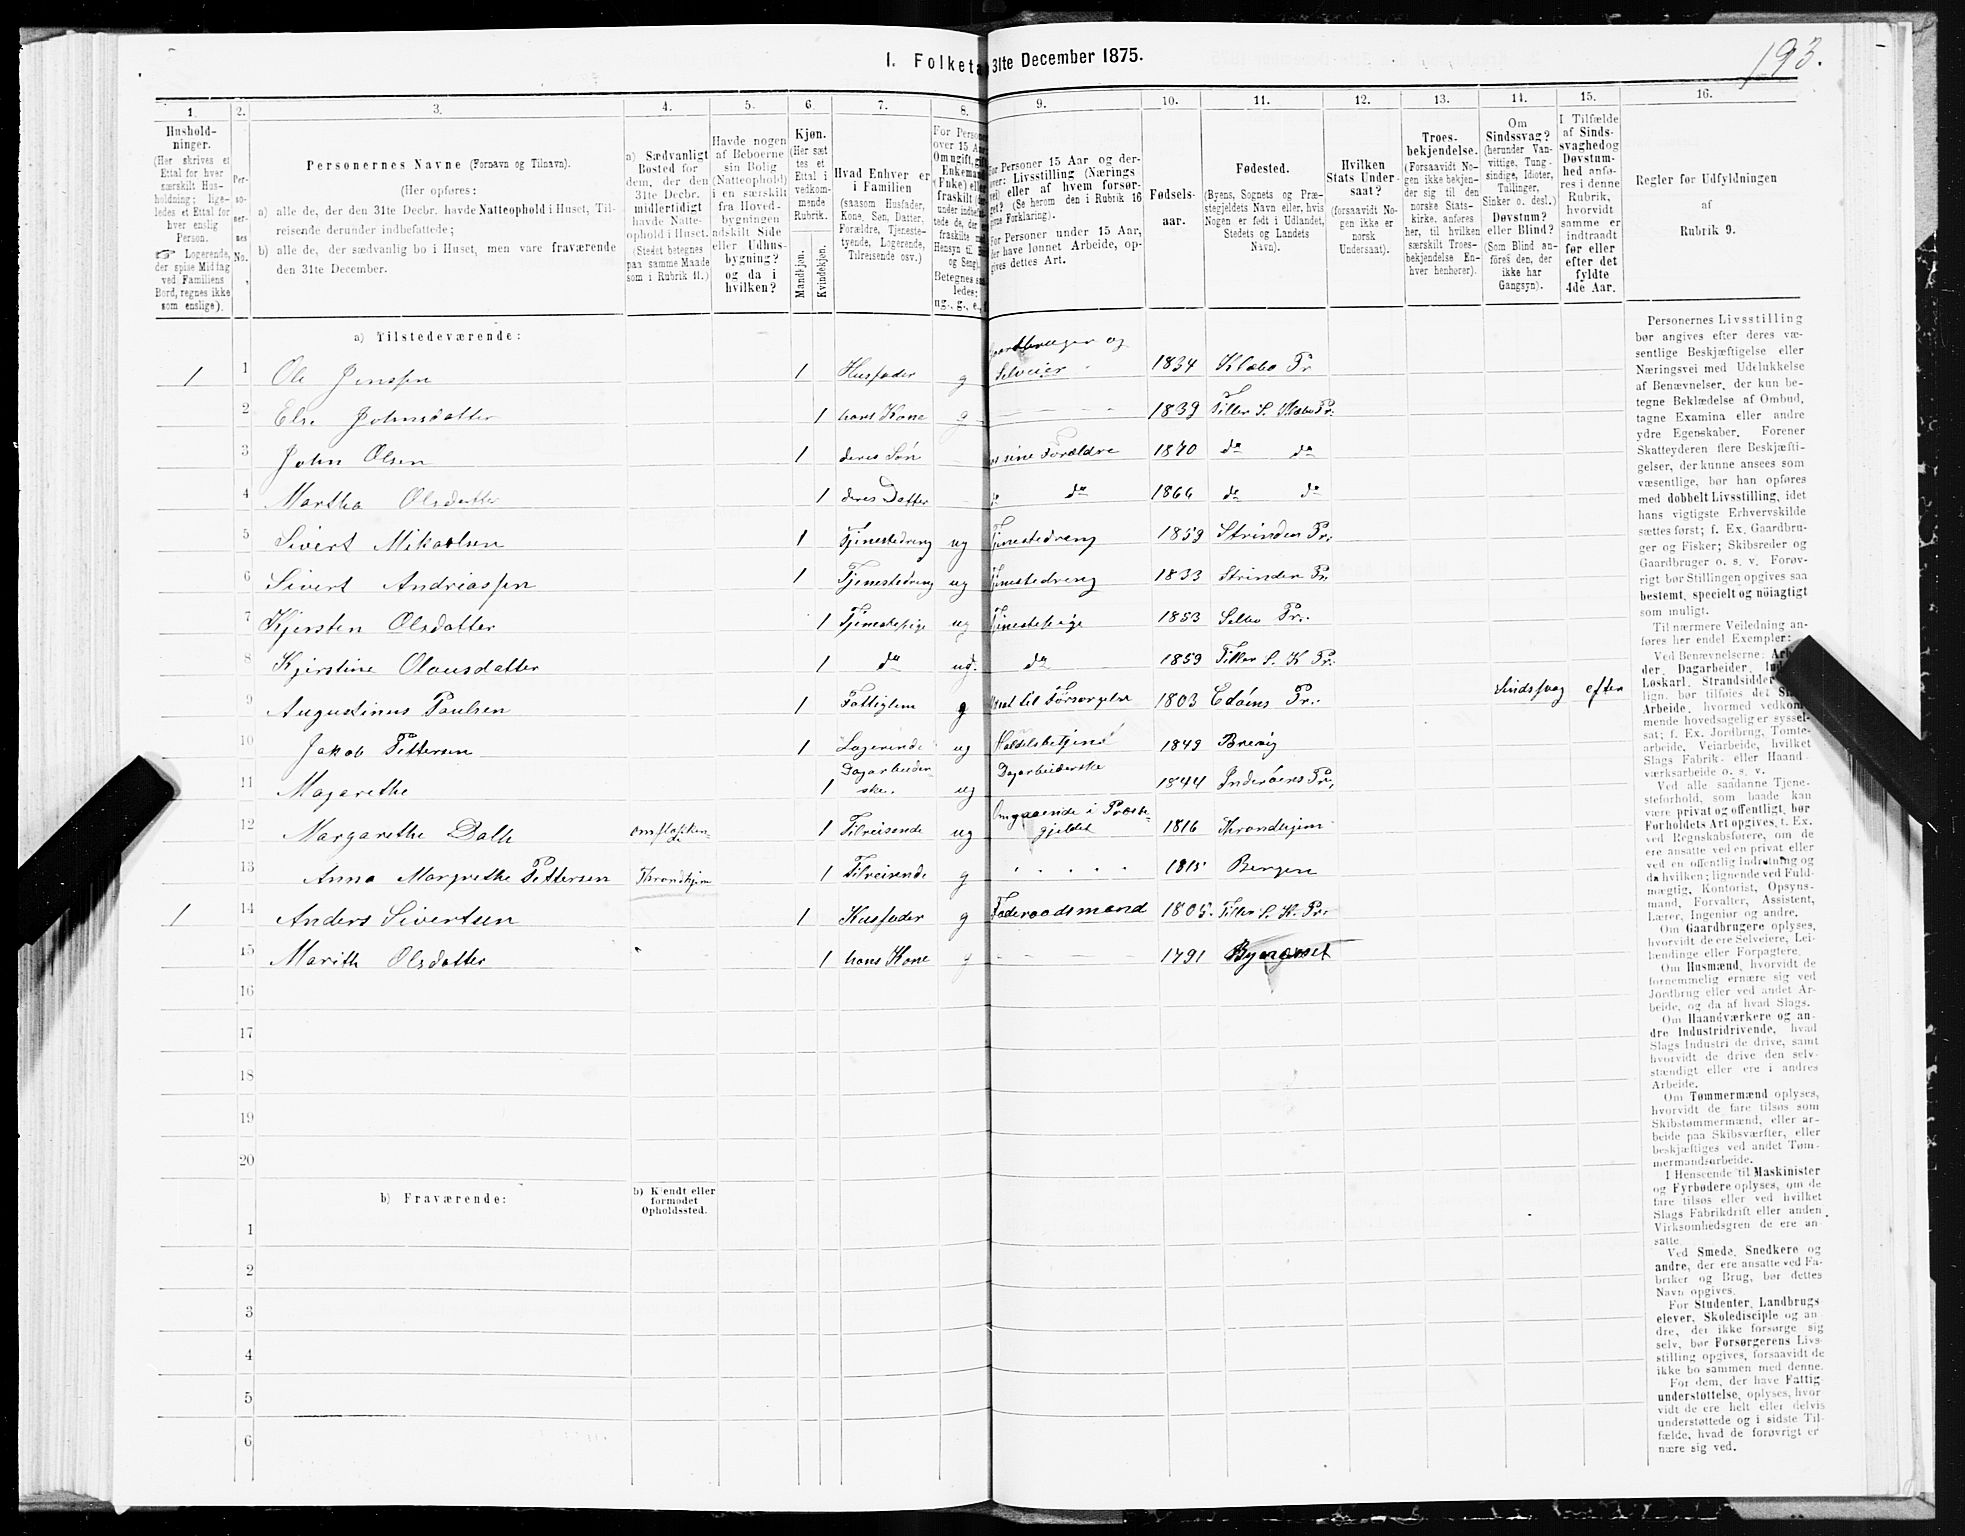 193.
I. Folketa 31te December 1875.
1. 2. 3. 4. 5. 6. 7. 8. 9. 10. 11. 12. 13. 14. 15. 16.
Hushold-
ninger.
(Her skrives et
Ettal for hver
særskilt Hus-
holdning; lige-
ledes et Ettal for
hver enslig
Person.
☞ Logerende,
der spise Middag
ved Familiens
Bord, regnes ikke
som enslige).
Per-
so-
ner-
nes
No.
Personernes Navne (Fornavn og Tilnavn).
(Her opføres:
a) alle de, der den 31te Decbr. havde Natteophold i Huset, Til-
reisende derunder indbefattede;
b) alle de, der sædvanlig bo i Huset, men vare fraværende
den 31te December.
a) Sædvanligt
Bosted for
dem, der den
31te Decbr.
midlertidigt
havde Natte-
ophold i Huset.
(Stedet betegnes
paa samme Maade
som i Rubrik 11.)
Havde nogen
af Beboerne
sin Bolig
(Natteophold)
i en særskilt
fra Hoved-
bygningen
adskilt Side
eller Udhus-
bygning?
og da i
hvilken?
Kjøn.
(Her sæt
tes et
Ettal i
vedkom-
mende
Rubrik.
Mandkjøn.
Kvindekjøn.
Hvad Enhver er
i Familien
(saasom Husfader,
Kone, Søn, Datter,
Forældre, Tjeneste-
tyende, Logerende,
Tilreisende osv.)
For Person
over 15 Aar
Om ugift, gift
Enkemand
(Enke) eller
fraskilt
Betegnes saa
ledes:
ug., g., e.,
For Personer 15 Aar og der-
over: Livsstilling (Nærings
vei) eller af hvem forsør-
get? (Se herom den i Rubrik 16
givne Forklaring).
For Personer under 15 Aar,
der have lønnet Arbeide, op-
gives dettes Art.
Fødsels-
aar.
Fødested.
(Byens, Sognets og Præ-
stegjeldets Navn eller, hvis
Nogen er født i Udlandet,
Stedets og Landets
Navn).
Hvilken
Stats Under-
saat?
(forsaavidt No-
gen ikke er
norsk
Undersaat).
Troes-
bekjendelse.
(Forsaavidt No-
gen ikke bekjen-
der sig til den
norske Stats-
kirke, anføres
her, til hvilken
særskilt Troes-
bekjendelse En-
hver henhører).
Om
Sindssvag?
(herunder Van-
vittige, Tung-
sindige, Idioter,
Tullinger,
Sinker o. desl.)
Døvstum?
eller Blind?
(Som Blind an-
føres den, der
ikke har
Gangsyn).
I Tilfælde
af Sinds-
svaghed og
Døvstum-
hed anfø-
res i denne
Rubrik,
hvorvidt
samme er
indtraadt
før eller
efter det
fyldte
4de Aar.
Regler for Udfyldningen
af
Rubrik 9.
a) Tilstedeværende:
1 1 Ole Jenssen 1 Husfader g Gaardbruger og Selveier 1834 Klæbo Pr
2 Else Johnsdatter 1 hans Kone g 1839 Tiller S. Klæbo Pr.
3 John Olsen 1 deres Søn sine Forældre 1870 do do
4 Martha Olsdatter 1 deres Datter do do 1866 do do
5 Sivert Mikaelsen 1 Tjenestedreng ug Tjenestedreng 1859 Strinden Pr.
6 Sivert Andriassen 1 Tjenestedreng ug Tjenestedreng 1833 Strinden Pr
7 Kjersten Olsdatter 1 Tjenestepige ug Tjenestepige 1853 Selbo Pr.
8 Kjerstine Olausdatter 1 do ug. do 1859 Tiller S. K Pr.
9 Augustinus Paulsen 1 Fattiglem g sat til Forsørgelse 1803 Edøens Pr. Sindssvag efter
10 Jakob Pettersen 1 Logerende ug Handelsbetjent 1849 Brevig
11 Magarethe 1 Dagarbeider-
ske. ug Dagarbeiderske 1844 Inderøens Pr.
12 Margarethe Dalh omflakken-
de 1 Tilreisende ug Omgaaende i Præste-
gjeldet 1816 Throndhjem
13 Anna Margrethe Pettersen Throndhjem 1 Tilreisende g 1815 Bergen
1 14 Anders Sivertsen 1 Husfader g Føderaadsmand 1805. Tiller S. K. Pr.
15 Marith Olsdatter 1 hans Kone g 1791 Bynæsset
16
17
18
19
20
b) Fraværende:
b) Kjendt eller
formodet
Opholdssted.
1
2
3
4
5
6
Personernes Livsstilling
bør angives efter deres væ-
sentlige Beskjæftigelse eller
Næringsvei med Udelukkelse
af Benævnelser, der kun be-
tegne Beklædelse af Ombud,
tagne Examina eller andre
ydre Egenskaber. Forener
Skatteyderen flere Beskjæfti-
gelser, der kunne ansees som
væsentlige, bør han opføres
med dobbelt Livsstilling, idet
hans vigtigste Erhvervskilde
sættes først; f. Ex. Gaardbru-
ger og Fisker; Skibsreder og
Gaardbruger o. s. v. Forøv-
rigt bør Stillingen opgives saa
bestemt, specielt og nöiagtigt
som muligt.
Til nærmere Veiledning an-
føres her endel Exempler:
Ved Benævnelserne:
der Dagarbeider,
Løskarl, Strandsidder
lign. bør tilføies det
Arbeide, hvormed vedkom-
mende hovedsagelig er syssel-
sat; f. Ex. Jordbrug, Tomte-
arbeide, Veiarbeide, hvilket
Slags Fabrik- eller Haand-
værksarbeide o. s. v.
Ved alle saadanne Tjene-
steforhold, som baade kan
være privat og offentligt, bør
Forholdets Art opgives, f. Ex.
ved Regnskabsførere, om de
ere ansatte ved en privat eller
ved en offentlig Indretning og
da hvilken; lignende ved Fuld-
mægtig, Kontorist, Opsyns-
mand, Forvalter, Assistent,
Lærer, Ingeniør og andre.
Om Gaardbrugere oplyses,
hvorvidt de ere Selveiere, Lei-
lændinge eller Forpagtere.
Om Husmænd, hvorvidt de
fornemmelig ernære sig ved
Jordbrug eller ved andet Ar-
beide, og da af hvad Slags.
Om Haandværkere og an-
dre Industridrivende, hvad
Slags Industri de drive, samt
hvorvidt de drive den selv-
stændigt eller ere i andres
Arbeide.
Om Tømmermænd oplyses,
hvorvidt de fare tilsøs som
Skibstømmermænd, eller ar-
beide paa Skibsværfter, eller
beskjæftiges ved andet Tøm-
mermandsarbeide.
I Henseende til Maskinister
og Fyrbødere oplyses, om de
fare tilsøs eller ved hvilket
Slags Fabrikdrift eller anden
Virksomhedsgren de ere an
satte.
Ved Smede, Snedkere og
andre, der ere ansatte ved Fa-
briker og Brug, bør dettes
Navn opgives.
For Studenter, Landbrugs
elever, Skoledisciple og an-
dre, der ikke forsørge sig
selv, bør Forsørgerens Livs-
stilling opgives, forsaavidt de
ikke bo sammen med denne.
For dem, der have Fattig-
understøttelse, oplyses, hvor
vidt de ere helt eller delvis
understøttede og i sidste Til-
fælde, hvad de forøvrigt er
nære sig ved.